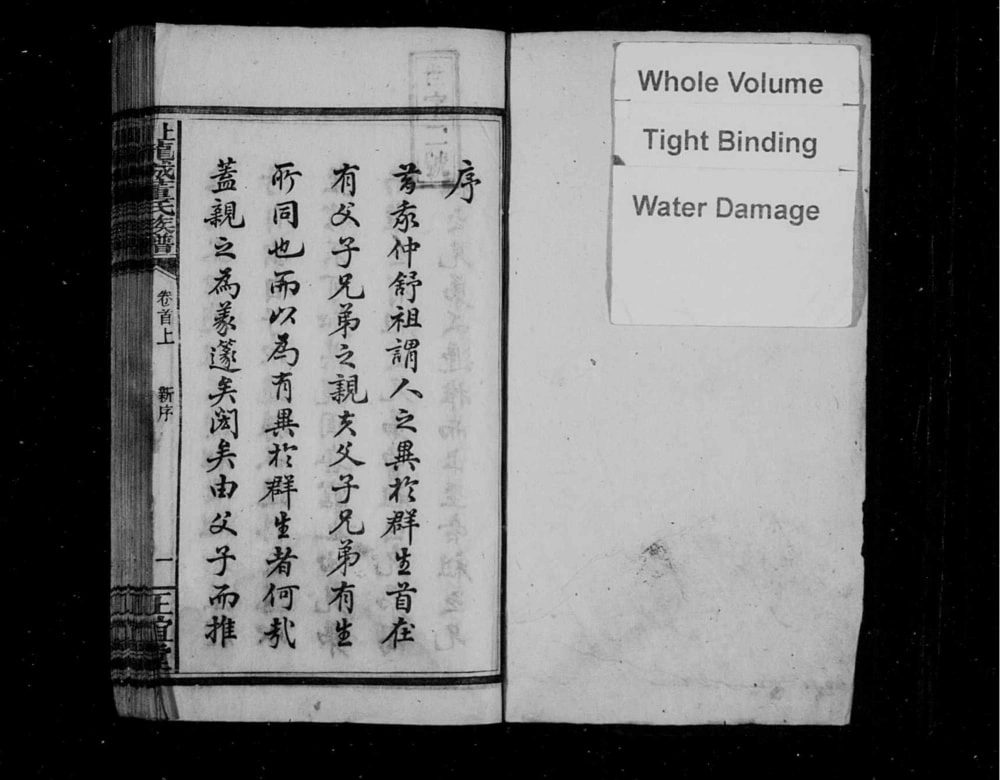 Whole Volume
Tight Binding
Water Damage
序
昔我仲舒祖謂人之異於群生首在
有父子兄弟之親夫父子兄弟有生
所同也而以為有異於群生者何哉
蓋親之為義邃矣閎矣由父子而推
龍城董氏族譜
卷首上
新序
一
正誼堂